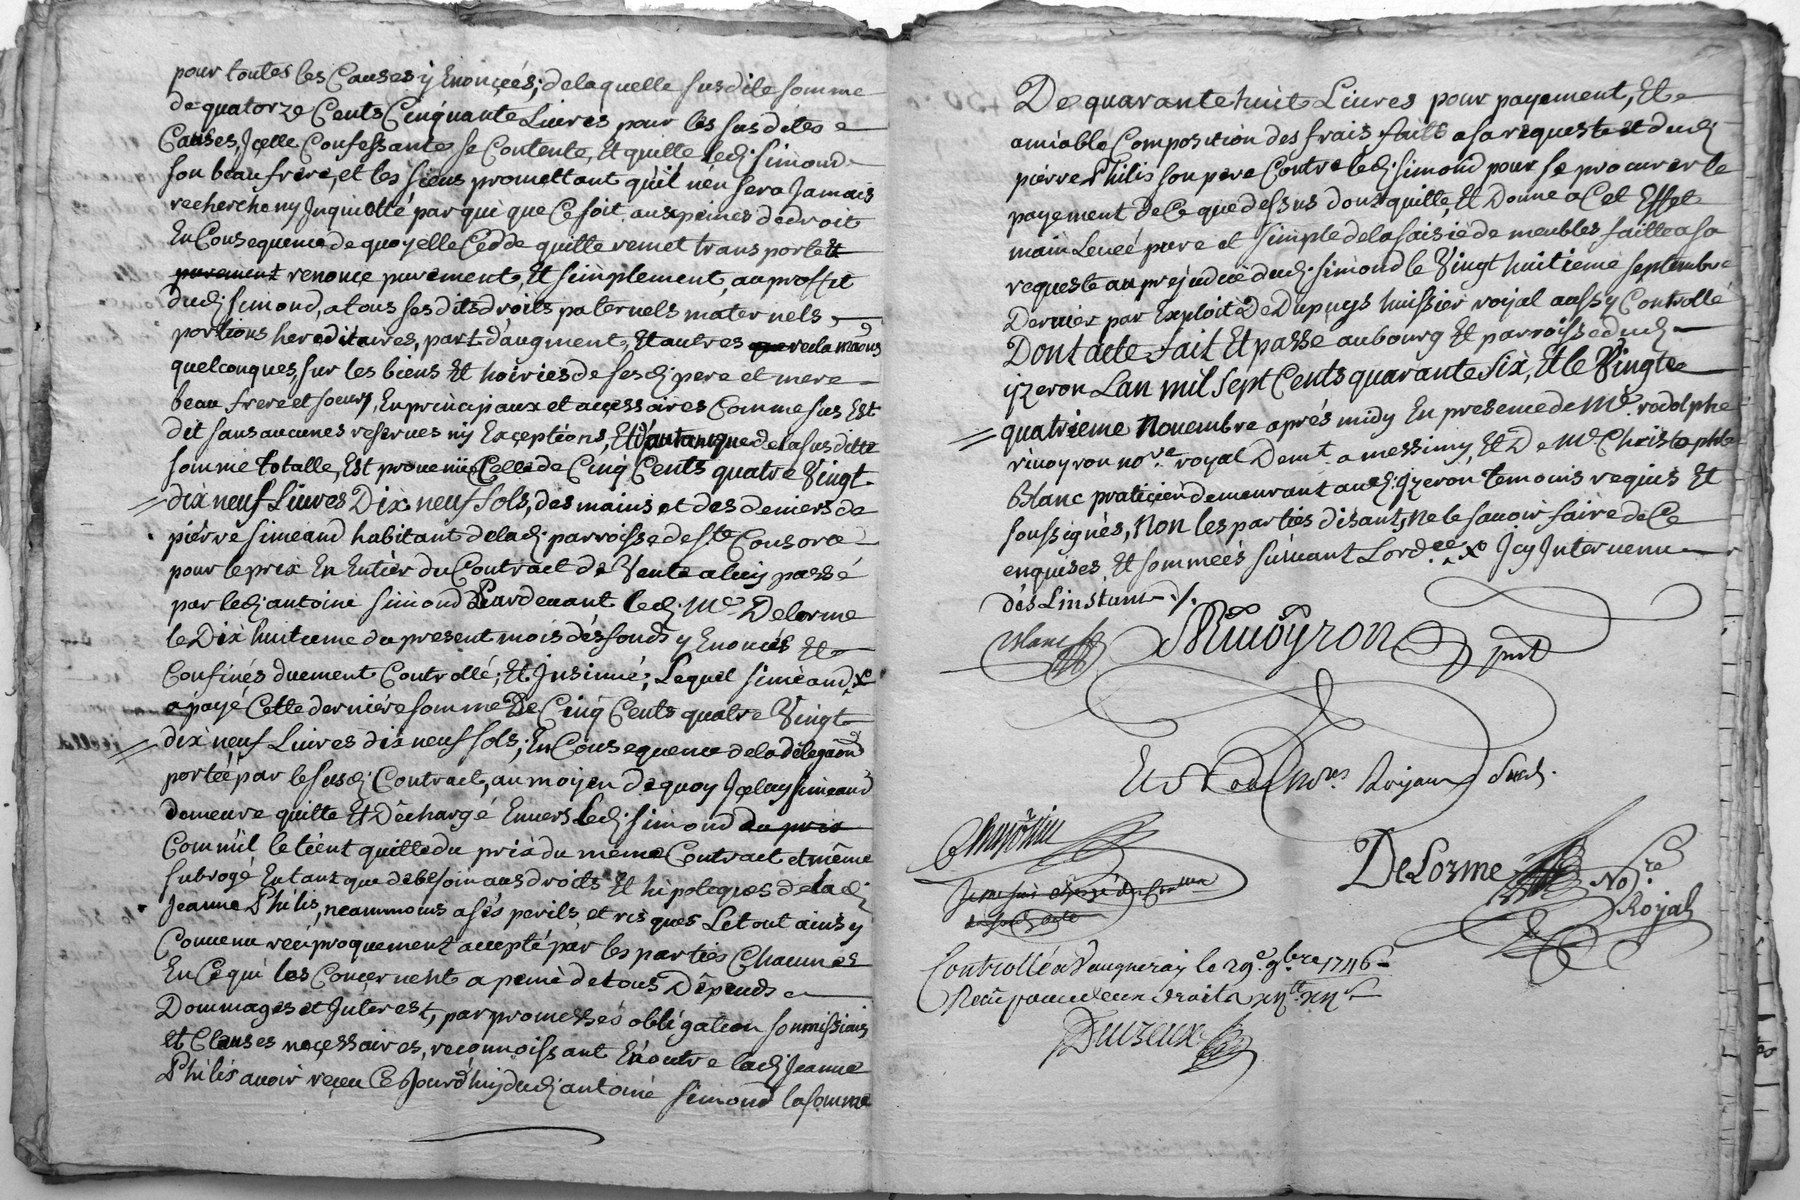 pour toutes les Causes ÿ Enonçéés; de laquelle susdite somme
de quatorze Cents Cinquante Livres pour les susdites
Causes, Jçelle Confessante se Contente, Et quitte led. simond
son beau frere, et les siens promettant qu'il n'en sera Jamais
recherche ny Jnquietté par qui que Ce soit aux peines de droit
En Consequence de quoy elle Cedde quitte remet transporte Et
purement renonçe purement, Et simplement, au proffit
dud. simond, a tous sesdits droits paternels maternels
portions hereditaires, part d'augment, Et autres que reclamaõns
quelconques, sur les biens Et hoiries de sesd. pere et mere
beau frere et soeurs, En principaux et açessoires Comme sus Est
dit sans aucunes reserves ny Exçeptions, Et d'autant que de la susditte
somme totalle, Est provenüe Celle de Cinq Cents quatre Vingt
dix neuf Livres Dix neuf sols, des mains et des deniers de
pierre simeand habitant de lad. parroisse de ste Consorce
pour le prix En Entier du Contract de Vente a luy passé
par led. antoine simond Pardevant led. Me Delorme
le Dix huitieme du present mois dés fonds y Enoncés Et
Confinés duement Controllé, Et Jnsinué; Lequel simeand x
a payé Cette derniére somme De Cinq Cents quatre Vingt
dix neuf Livres dix neuf sols; En Consequence de la délegaõn
portéé par le susd. Contract, au moÿen de quoy Jçeluy simeand
demeure quitte Et Déchargé Envers led. simond du prix
Comm'il le tient quitte du prix du même Contract et même
subrogé En tant que de besoin aux droits Et hipoteques de lad.
Jeanne Philis, neammoins a ses perils et risques Le tout ainsy
Convenu reciproquement accepté par les parties Chacunes
En Ce qui les Concernent a peine de tous Dépends
Dommages et Jnterest, par promesses obligation soumissions
et Clauses neçessaires, reconnoissant En outre lad. Jeanne
Philis avoir reçeu Ce Jourd'huy dud. antoine simond la somme
De quarante huit Livres pour payement, Et
amiable Composition des frais faits a sa requeste et dud.
pierre Philis son pere Contre led. simond pour se procurer le
payement de Ce que dessus dont quitte, Et Donne a Cet Effet
main Levéé pure et simple de la saisie de meubles faitte a sa
requeste au prejudice dud. simond le Vingt huitieme septembre
Dernier par Exploit De Dupuys huissier roÿal aussy Controllé
Dont acte fait Et passé au bourg Et parroisse dud.
yzeron Lan mil sept Cents quarante six, Et le Vingt
quatrieme Novembre aprés midy En presence de Me. rodolphe
rivoyron nore. royal Demt. a messimy, Et De Me Christophle
Blanc praticien demeurant aud. yzeron temoins requis Et
soussignés, Non les parties disant, ne le savoir faire de Ce
enquises, Et sommées suivant Lordce. x Jcy Jntervenu
dés Linstant ./.
Blanc
Rivoyron pnt
Delorme Nore.
Royal
Controllé a Vaugneray le 29e. 9bre 1746
Duizeux